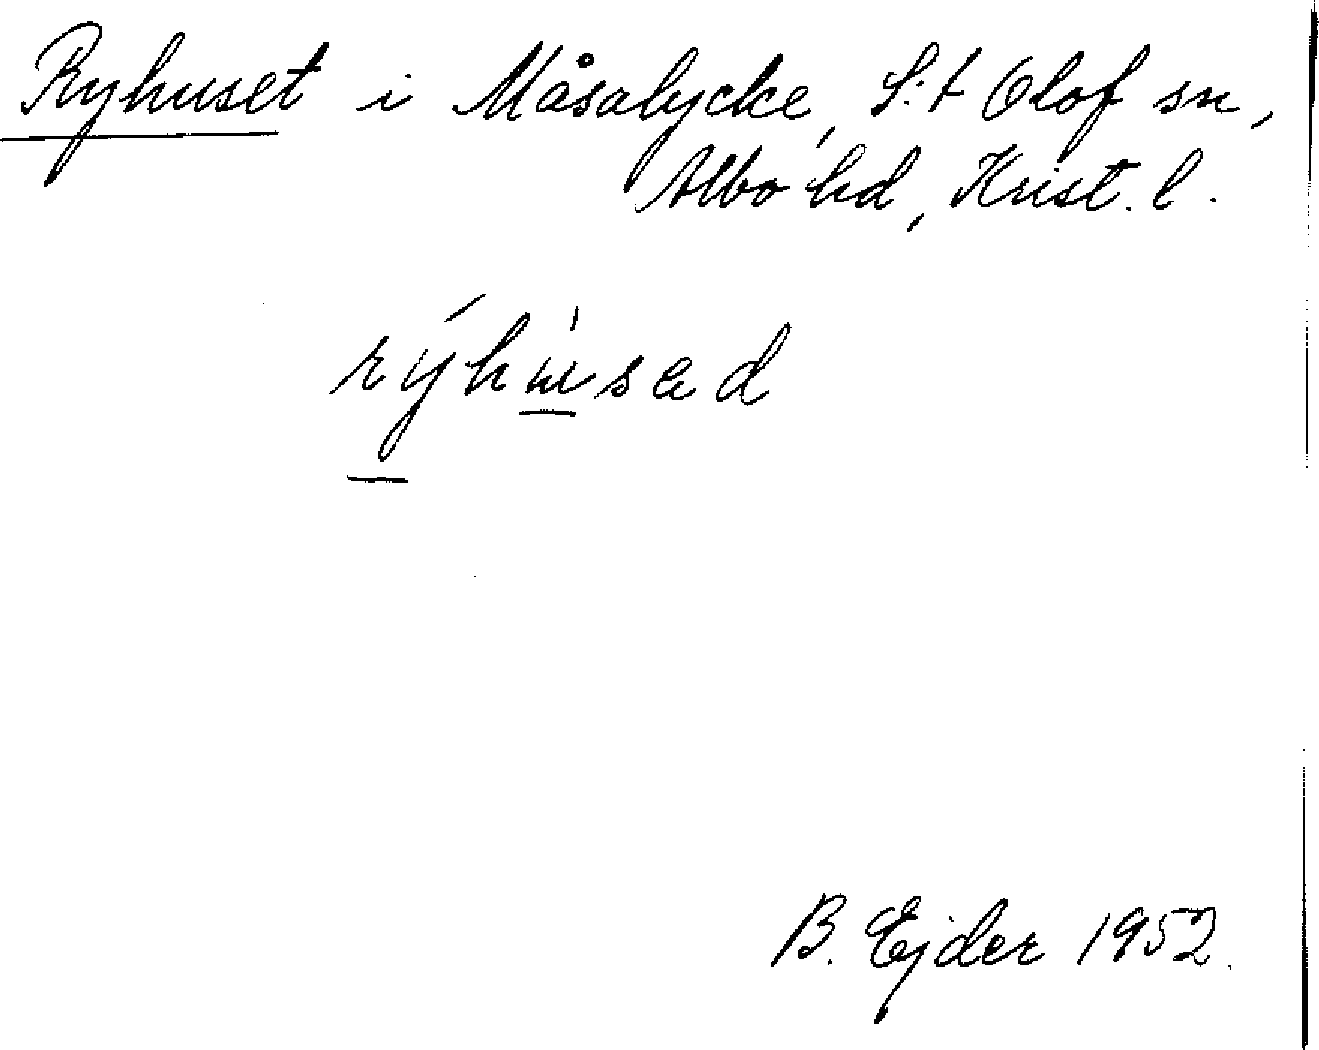 Ryhuset i Måsalycke, S:t Olof sn,
Albo hd, Krist. l.
rýhu̇sad
B. Ejder 1952.